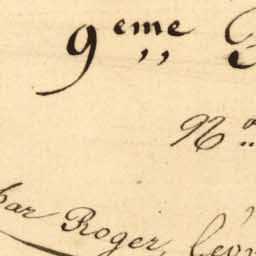 9eme
No
par Roger,